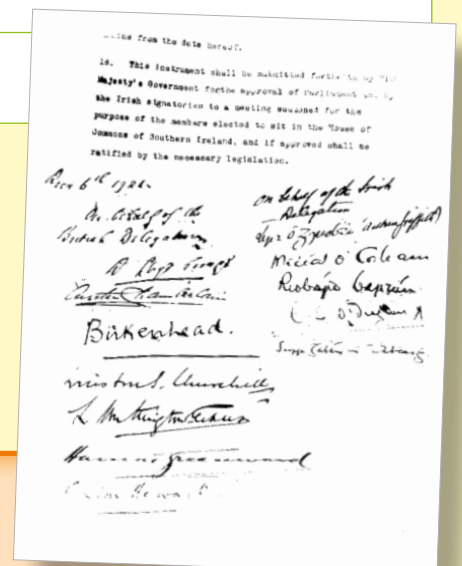 from the date hereof.
18. This instrument shall be submitted forthwith by His
Majesty's Government for the approval of Parliament and by
the Irish signatories to a meeting summoned for the
purpose of the members elected to sit in the House of
Commons of Southern Ireland, and if approved shall be
ratified by the necessary legislation.
Decr 6th 1921.
On behalf of the
British Delegation
D Lloyd George
Austen Chamberlain
Birkenhead.
Winston S. Churchill
L Worthington-Evans
Hamar Greenwood
Gordon Hewart
On behalf of the Irish
Delegation
Art Ó Gríobhtha (Arthur Griffith)
Mícheál Ó Coileain
Riobárd Bartún